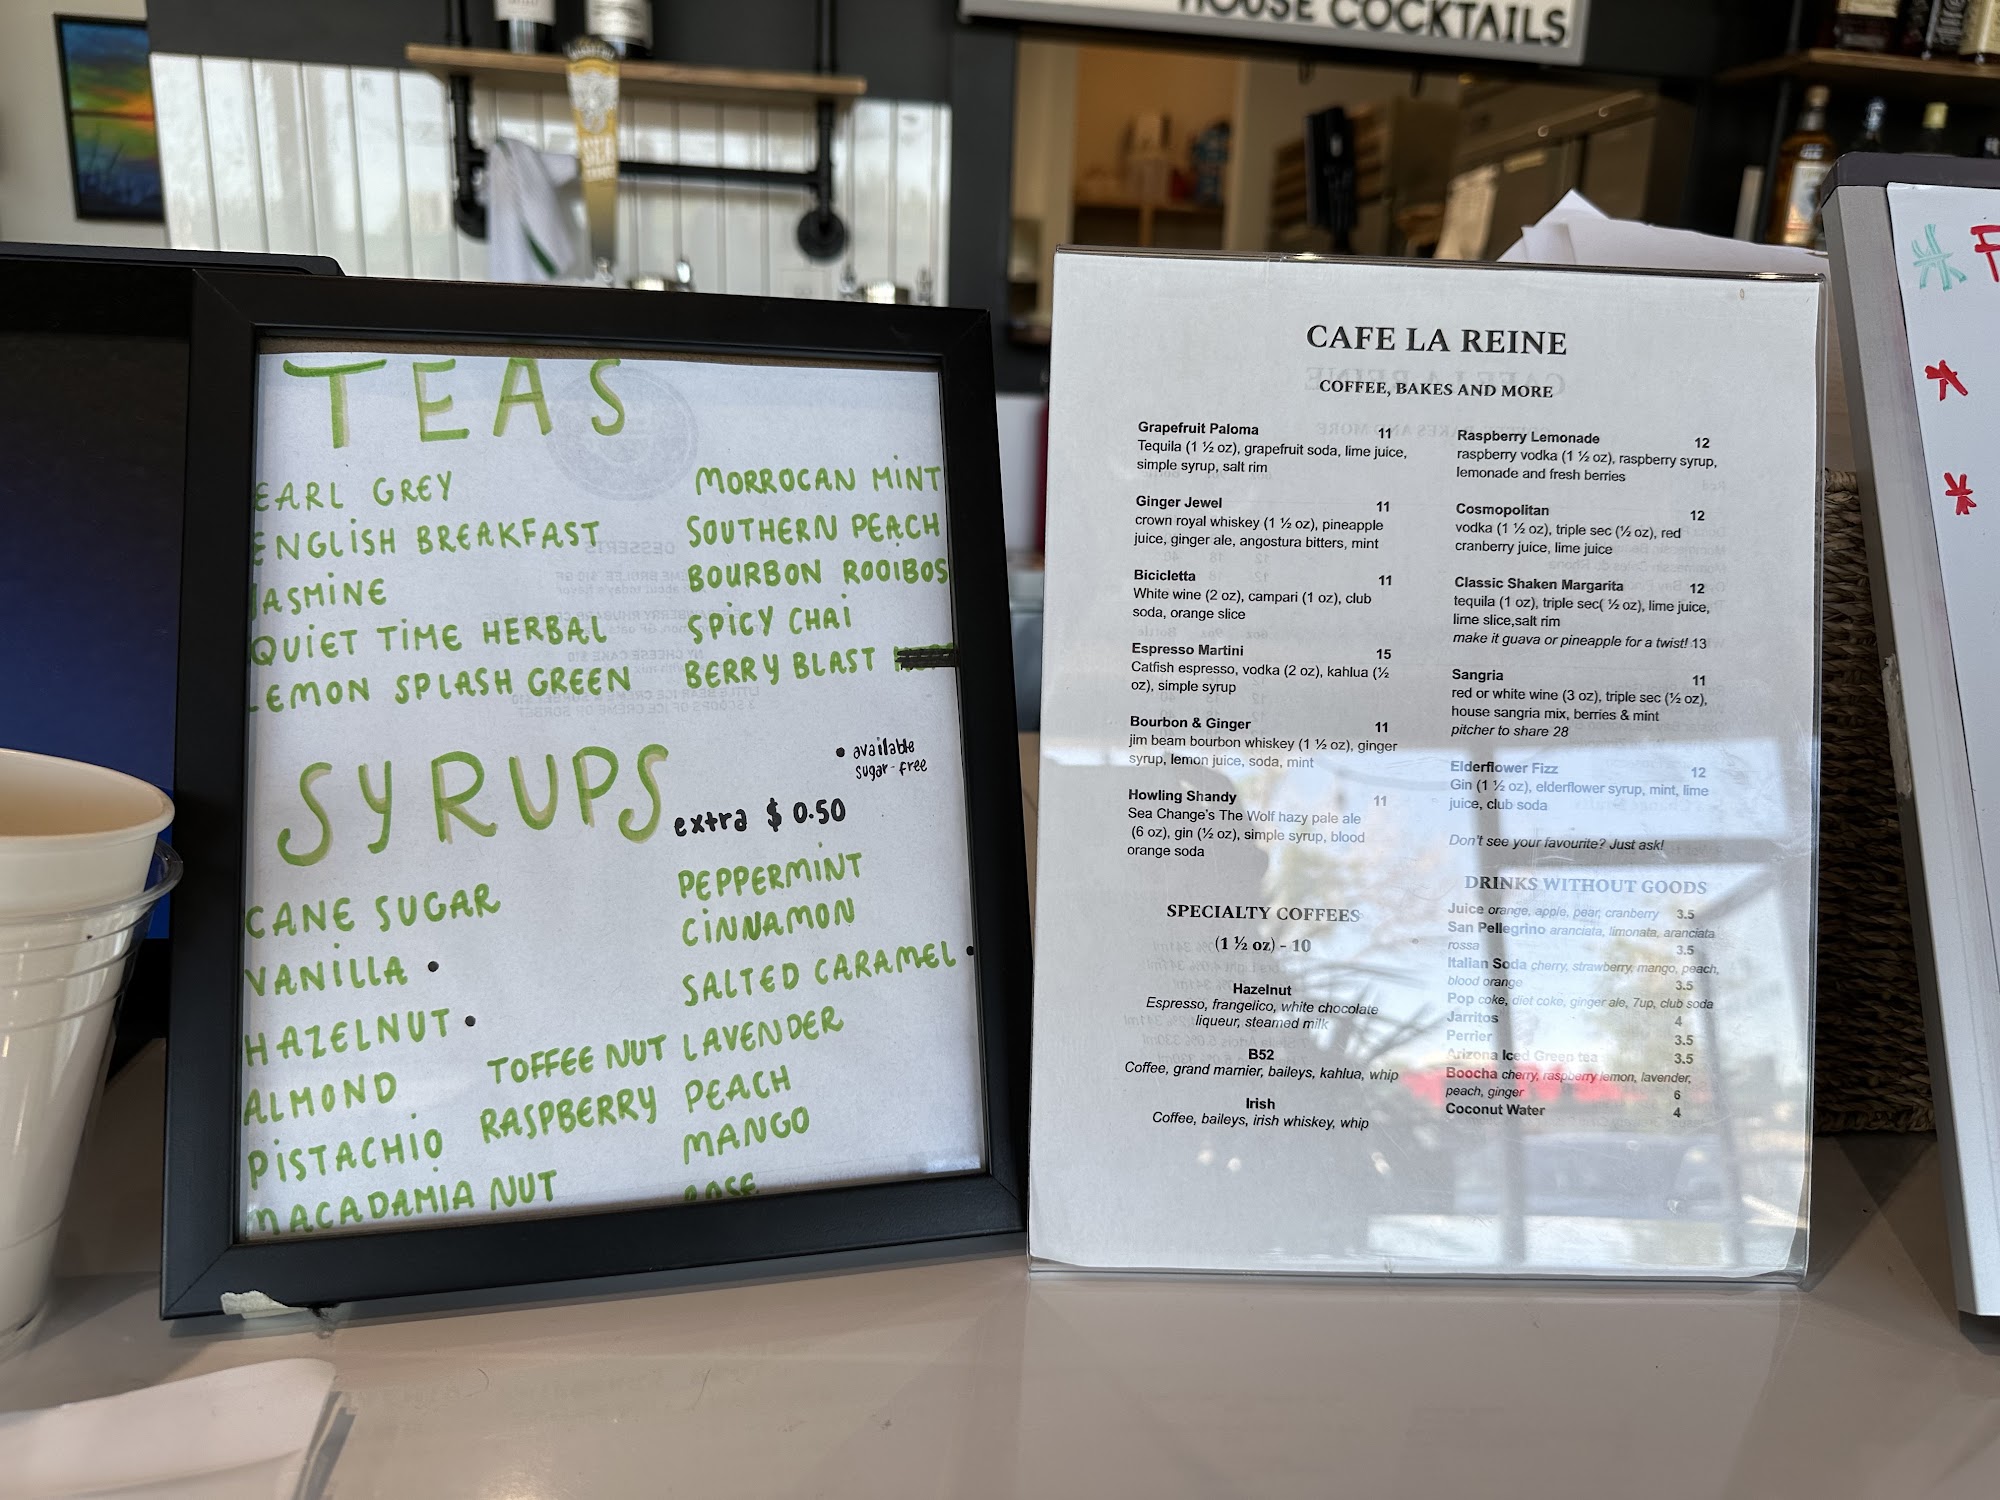 HOUSE COCKTAILS
TEAS
EARL GREY
ENGLISH BREAKFAST
JASMINE
QUIET TIME HERBAL
LEMON SPLASH GREEN
MORROCAN MINT
SOUTHERN PEACH
BOURBON ROOIBOS
SPICY CHAI
BERRY BLAST
SYRUPS
extra $ 0.50
• available
sugar-free
CANE SUGAR
VANILLA •
HAZELNUT •
ALMOND
PISTACHIO
MACADAMIA NUT
TOFFEE NUT
RASPBERRY
PEPPERMINT
CINNAMON
SALTED CARAMEL •
LAVENDER
PEACH
MANGO
ROSE
CAFE LA REINE
COFFEE, BAKES AND MORE
Grapefruit Paloma 11
Tequila (1 ½ oz), grapefruit soda, lime juice,
simple syrup, salt rim
Ginger Jewel 11
crown royal whiskey (1 ½ oz), pineapple
juice, ginger ale, angostura bitters, mint
Bicicletta 11
White wine (2 oz), campari (1 oz), club
soda, orange slice
Espresso Martini 15
Catfish espresso, vodka (2 oz), kahlua (½
oz), simple syrup
Bourbon & Ginger 11
jim beam bourbon whiskey (1 ½ oz), ginger
syrup, lemon juice, soda, mint
Howling Shandy 11
Sea Change's The Wolf hazy pale ale
(6 oz), gin (½ oz), simple syrup, blood
orange soda
SPECIALTY COFFEES
(1 ½ oz) - 10
Hazelnut
Espresso, frangelico, white chocolate
liqueur, steamed milk
B52
Coffee, grand marnier, baileys, kahlua, whip
Irish
Coffee, baileys, irish whiskey, whip
Raspberry Lemonade 12
raspberry vodka (1 ½ oz), raspberry syrup,
lemonade and fresh berries
Cosmopolitan 12
vodka (1 ½ oz), triple sec (½ oz), red
cranberry juice, lime juice
Classic Shaken Margarita 12
tequila (1 oz), triple sec( ½ oz), lime juice,
lime slice,salt rim
make it guava or pineapple for a twist! 13
Sangria 11
red or white wine (3 oz), triple sec (½ oz),
house sangria mix, berries & mint
pitcher to share 28
Elderflower Fizz 12
Gin (1 ½ oz), elderflower syrup, mint, lime
juice, club soda
Don't see your favourite? Just ask!
DRINKS WITHOUT GOODS
Juice orange, apple, pear, cranberry 3.5
San Pellegrino aranciata, limonata, aranciata
rossa 3.5
Italian Soda cherry, strawberry, mango, peach,
blood orange 3.5
Pop coke, diet coke, ginger ale, 7up, club soda
Jarritos 4
Perrier 3.5
Arizona Iced Green tea 3.5
Boocha cherry, raspberry lemon, lavender,
peach, ginger 6
Coconut Water 4